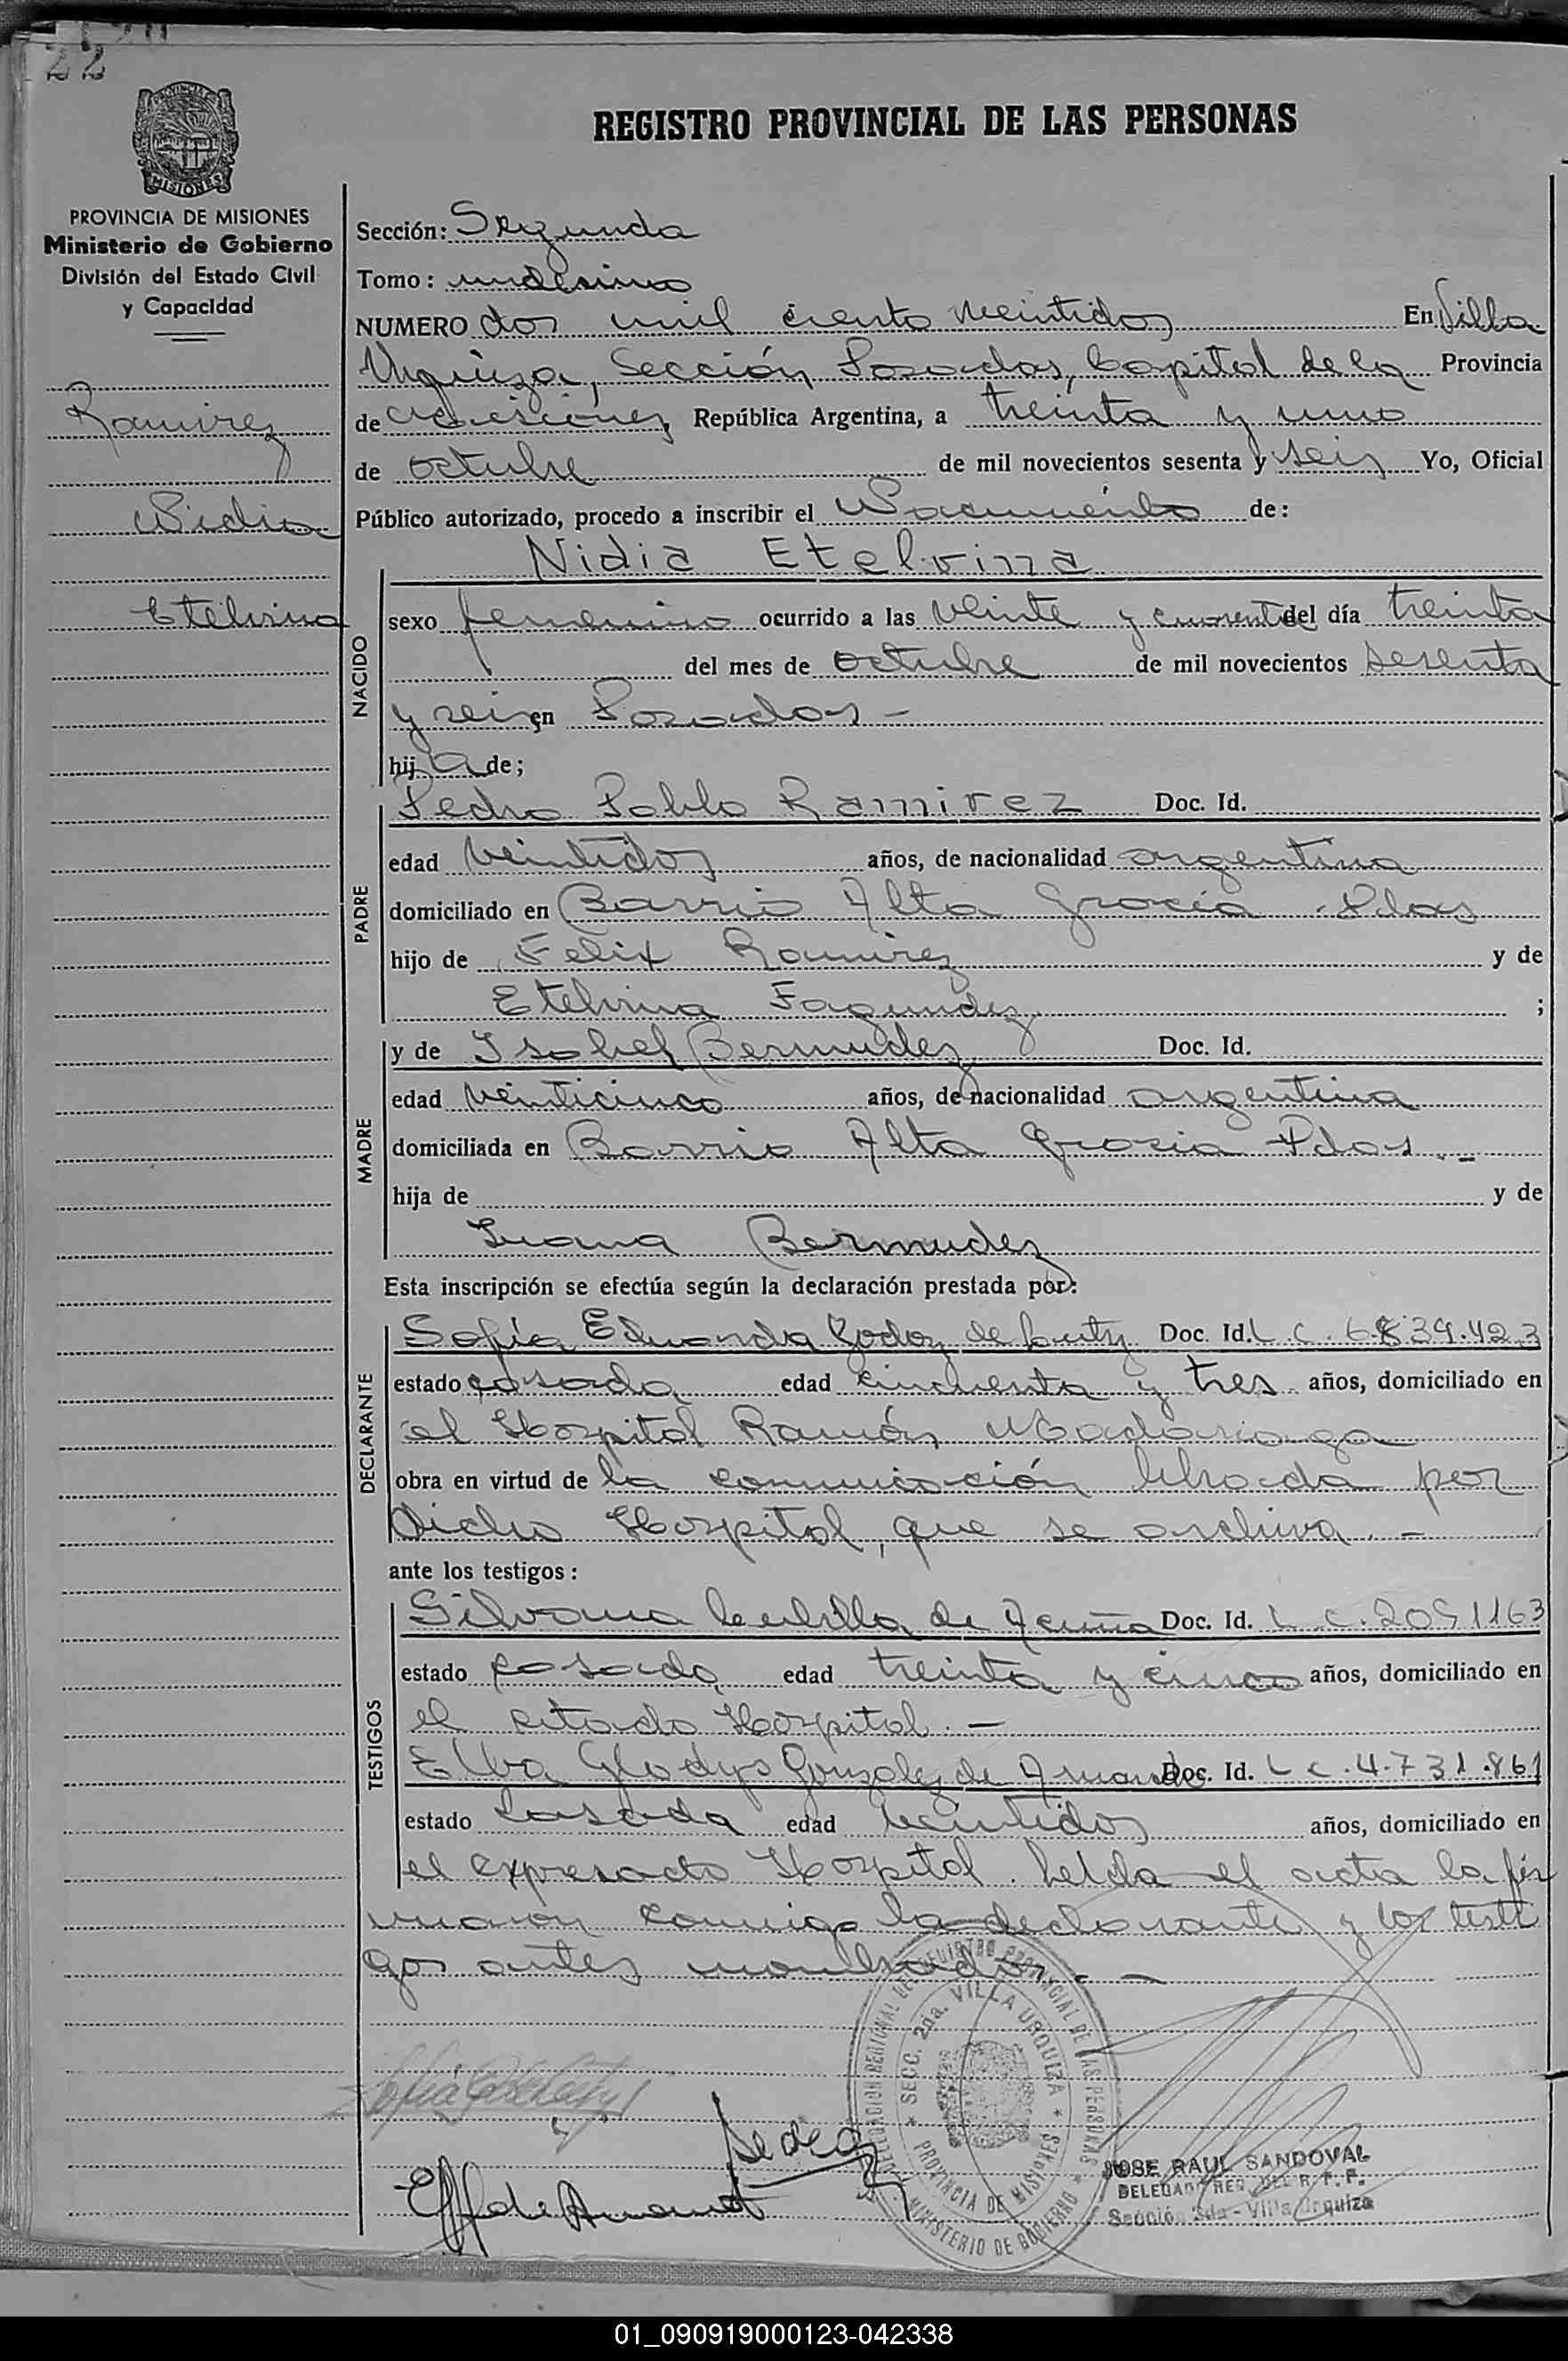 22
REGISTRO PROVINCIAL DE LAS PERSONAS
MISIONES
PROVINCIA DE MISIONES
Ministerio de Gobierno
División del Estado Civil
y Capacidad
Ramirez
Nidia
Etelvina
Sección: Segunda
Tomo: undesimo
NUMERO dos mil ciento veintidos En Villa
Urquiza, Sección Posadas, Capital de la Provincia
de Misiones, República Argentina, a treinta y uno
de octubre de mil novecientos sesenta y seis Yo, Oficial
Público autorizado, procedo a inscribir el Nacimiento de:
Nidia Etelvina
NACIDO
sexo femenino ocurrido a las veinte y cuarenta del día treinta
del mes de octubre de mil novecientos sesenta
y seis en Posadas -
hij a de;
PADRE
Pedro Pablo Ramirez Doc. Id.
edad veintidos años, de nacionalidad argentina
domiciliado en Barrio Alta Gracia - Pdas
hijo de Felix Ramirez y de
Etelvina Fagundez ;
MADRE
y de Isabel Bermudez Doc. Id.
edad veinticinco años, de nacionalidad argentina
domiciliada en Barrio Alta Gracia Pdas. -
hija de y de
Juana Bermudez
Esta inscripción se efectúa según la declaración prestada por:
DECLARANTE
Sofía Eduarda Godoy de Doc. Id. L C. 6.839.423
estado casada edad cincuenta y tres años, domiciliado en
el Hospital Ramón Madariaga
obra en virtud de la comunicación librada por
dicho Hospital, que se archiva. -
ante los testigos:
TESTIGOS
Silvana de Acuña Doc. Id. L C. 2051163
estado casada edad treinta y cinco años, domiciliado en
el citado Hospital. -
Elba Gladys Gonzalez de Doc. Id. L c. 4.731.861
estado casada edad veintidos años, domiciliado en
el expresado Hospital. Leida el acta la fir
maron conmigo la declarante y los testi
gos antes nombrados. -
DELEGACION REGIONAL DEL REGISTRO PROVINCIAL DE LAS PERSONAS
SECC. 2da. VILLA URQUIZA
PROVINCIA DE MISIONES
MINISTERIO DE GOBIERNO
JOSE RAUL SANDOVAL
DELEGADO REG. DEL R. P. P.
Sección 2da - Villa Urquiza
01_090919000123-042338